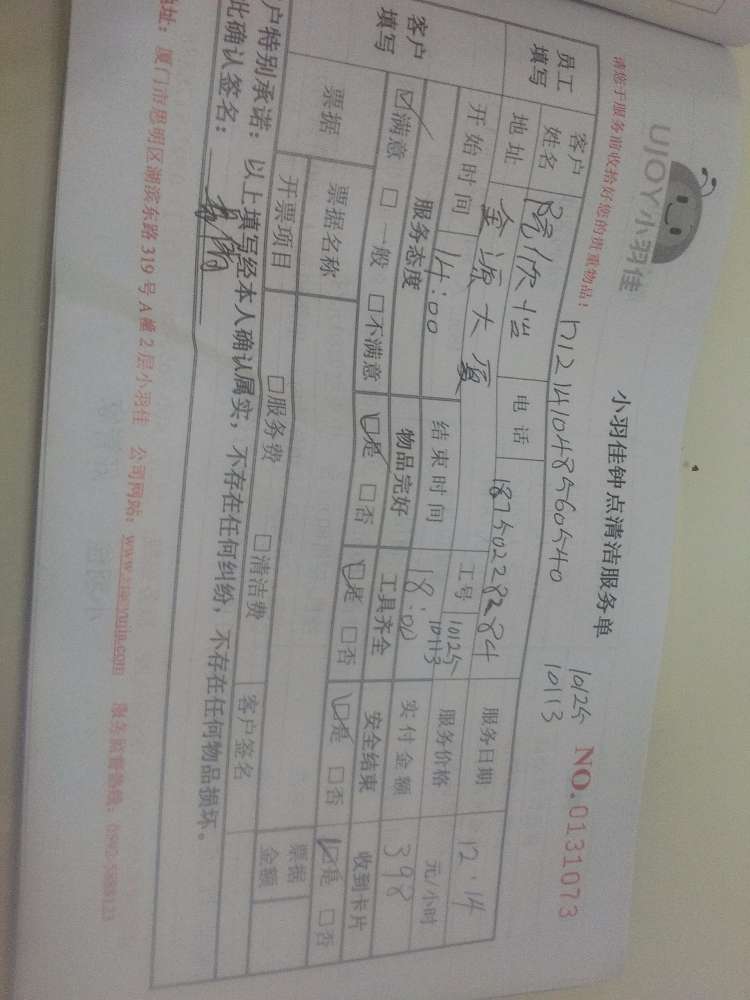 UJOY小羽佳
小羽佳钟点清洁服务单
NO.0131073
请您于服务前收拾好您的贵重物品:
h12141048560540
10125
10113
员工填写 客户姓名 阮欣怡 电话 18750228284 服务日期 12.14
地址 金源大厦 工号 10125 10113 服务价格 元/小时
开始时间 14:00 结束时间 18:00 实付金额 398
客户填写 服务态度 物品完好 工具齐全 安全结束 收到卡片
☑满意 □一般 □不满意 ☑是 □否 ☑是 □否 ☑是 □否 ☑是 □否
票据 票据名称 票据金额
开票项目 □服务费 □清洁费 客户签名
户特别承诺:以上填写经本人确认属实,不存在任何纠纷,不存在任何物品损坏。
此确认签名:
地址:厦门市思明区湖滨东路319号A幢2层小羽佳 公司网站:www.xiaoyujia.com 服务监督热线: